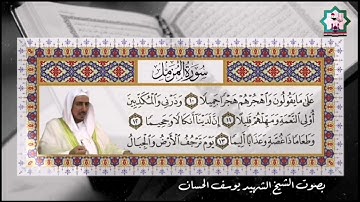 سورة المزمل
عَلَىٰ مَا يَقُولُونَ وَاهْجُرْهُمْ هَجْرًا جَمِيلًا ١٠ وَذَرْنِي وَالْمُكَذِّبِينَ
أُولِي النَّعْمَةِ وَمَهِّلْهُمْ قَلِيلًا ١١ إِنَّ لَدَيْنَا أَنكَالًا وَجَحِيمًا ١٢
وَطَعَامًا ذَا غُصَّةٍ وَعَذَابًا أَلِيمًا ١٣ يَوْمَ تَرْجُفُ الْأَرْضُ وَالْجِبَالُ
بصوت الشيخ الشهيد يوسف الحسان